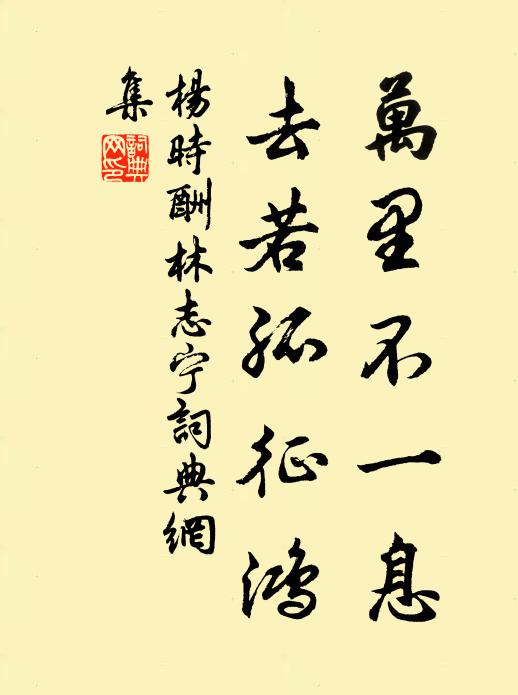 萬里不一息
去若孤征鴻
楊時酬林志宁詞典網
集
詞典
网印